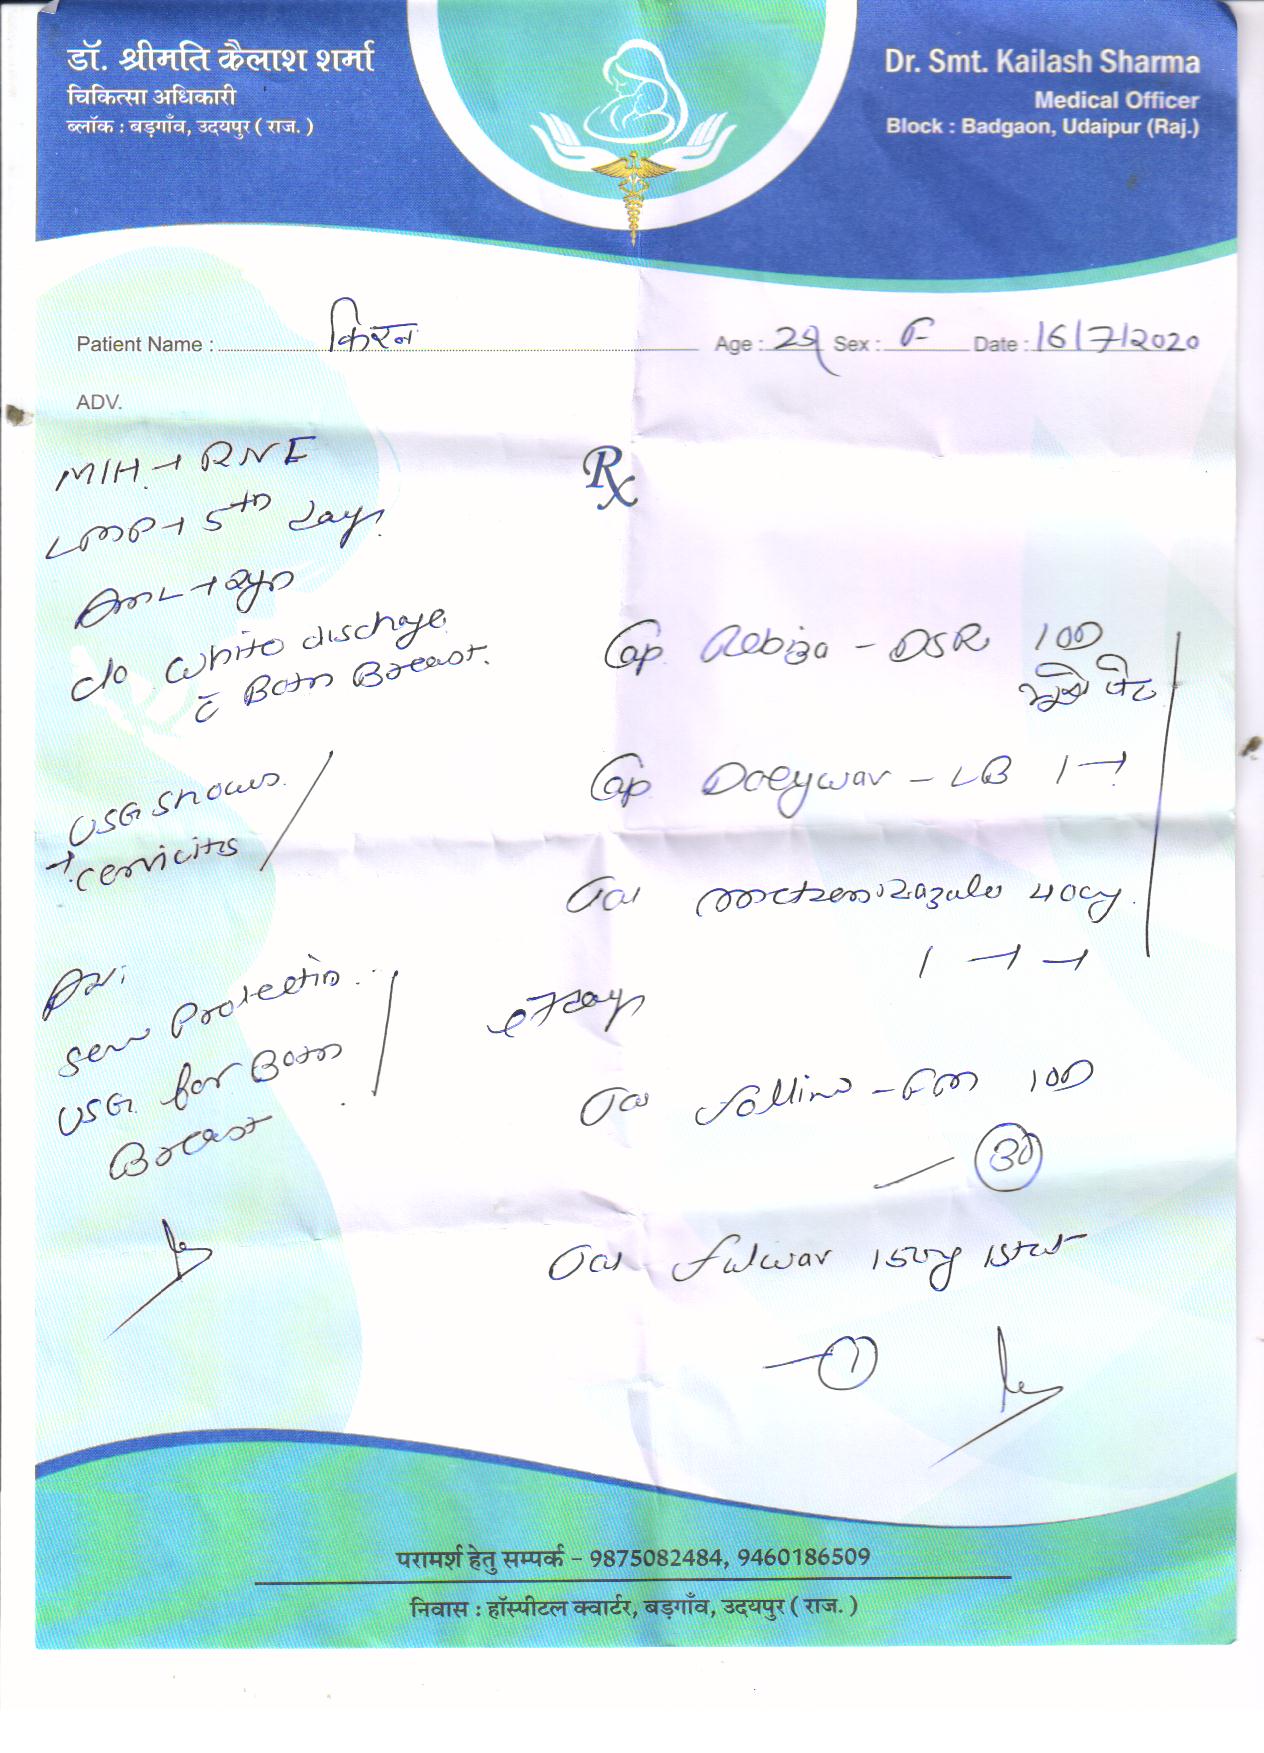 डॉ. श्रीमति कैलाश शर्मा
चिकित्सा अधिकारी
ब्लॉक : बड़गाँव, उदयपुर ( राज. )
Dr. Smt. Kailash Sharma
Medical Officer
Block : Badgaon, Udaipur (Raj.)
Patient Name : किरन Age : 29 Sex : F Date : 16/7/2020
ADV.
M/H → RNF
LMP → 5th days
→ 2yr
c/o White discharge
c̄ Both Breast.
USG shows
→ cervicitis
Adv:
Serum Prolactin
USG for Both
Breast
Rx
Cap Rebiza - DSR 1OD
भूखे पेट
Cap Doxywav - LB 1 →
Tab Metronidazole 400mg
1 → →
x 7 days
Tab Follino - FM 1OD
— 30
Tab Fulwav 150mg 1stat
— 1
परामर्श हेतु सम्पर्क – 9875082484, 9460186509
निवास : हॉस्पीटल क्वार्टर, बड़गाँव, उदयपुर ( राज. )